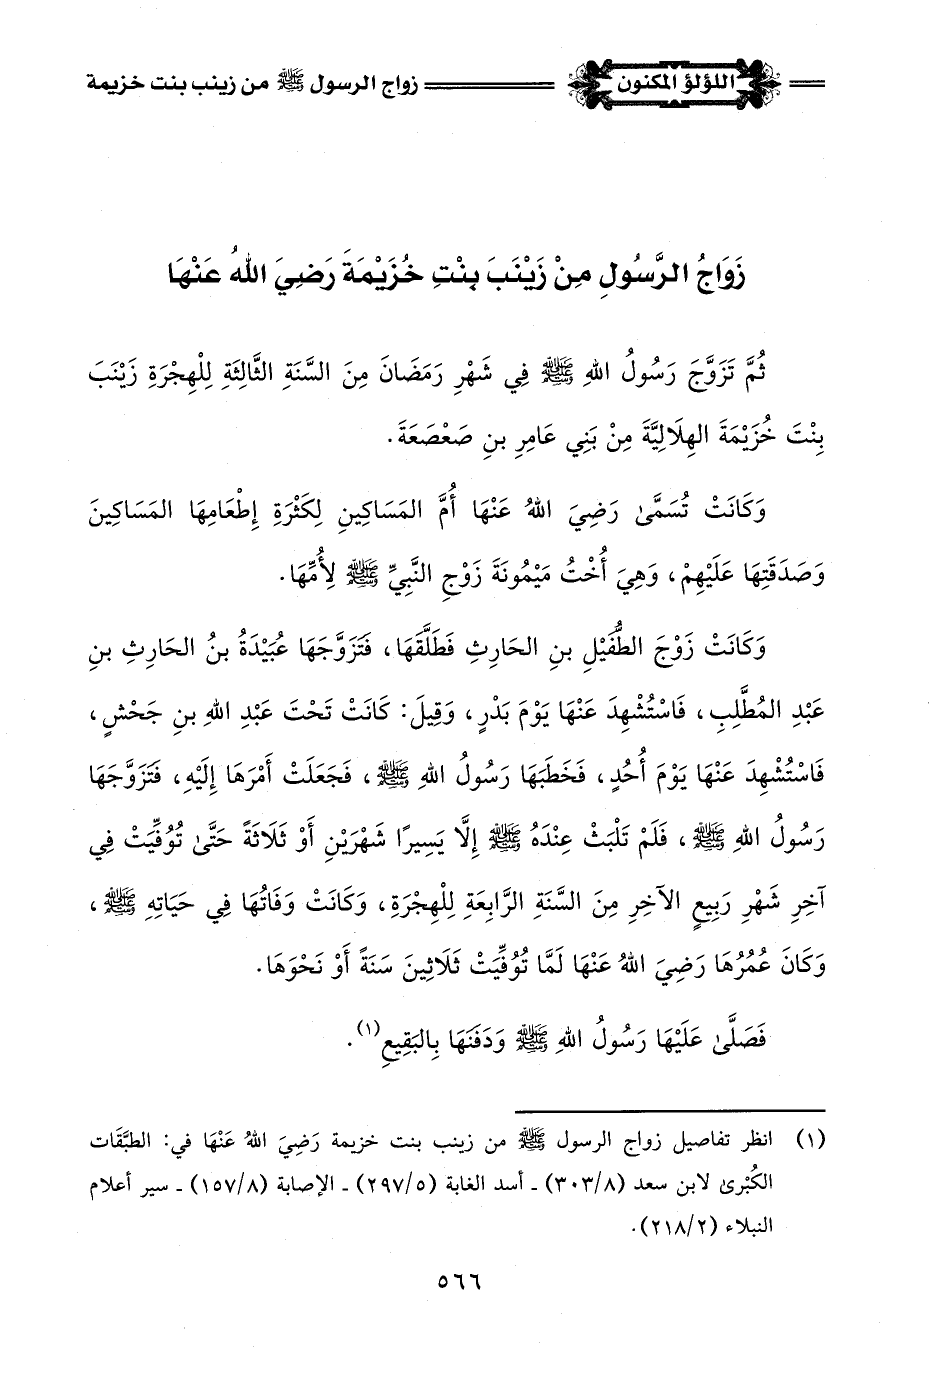 اللؤلؤ المكنون زواج الرسول ﷺ من زينب بنت خزيمة
زَوَاجُ الرَّسُولِ مِنْ زَيْنَبَ بِنْتِ خُزَيْمَةَ رَضِيَ اللهُ عَنْهَا
ثُمَّ تَزَوَّجَ رَسُولُ اللهِ ﷺ فِي شَهْرِ رَمَضَانَ مِنَ السَّنَةِ الثَّالِثَةِ لِلْهِجْرَةِ زَيْنَبَ
بِنْتَ خُزَيْمَةَ الهِلَالِيَّةَ مِنْ بَنِي عَامِرِ بنِ صَعْصَعَةَ.
وَكَانَتْ تُسَمَّىٰ رَضِيَ اللهُ عَنْهَا أُمَّ المَسَاكِينِ لِكَثْرَةِ إِطْعَامِهَا المَسَاكِينَ
وَصَدَقَتِهَا عَلَيْهِمْ، وَهِيَ أُخْتُ مَيْمُونَةَ زَوْجِ النَّبِيِّ ﷺ لِأُمِّهَا.
وَكَانَتْ زَوْجَ الطُّفَيْلِ بنِ الحَارِثِ فَطَلَّقَهَا، فَتَزَوَّجَهَا عُبَيْدَةُ بنُ الحَارِثِ بنِ
عَبْدِ المُطَّلِبِ، فَاسْتُشْهِدَ عَنْهَا يَوْمَ بَدْرٍ، وَقِيلَ: كَانَتْ تَحْتَ عَبْدِ اللهِ بنِ جَحْشٍ،
فَاسْتُشْهِدَ عَنْهَا يَوْمَ أُحُدٍ، فَخَطَبَهَا رَسُولُ اللهِ ﷺ، فَجَعَلَتْ أَمْرَهَا إِلَيْهِ، فَتَزَوَّجَهَا
رَسُولُ اللهِ ﷺ، فَلَمْ تَلْبَثْ عِنْدَهُ ﷺ إِلَّا يَسِيرًا شَهْرَيْنِ أَوْ ثَلَاثَةً حَتَّىٰ تُوُفِّيَتْ فِي
آخِرِ شَهْرِ رَبِيعٍ الآخِرِ مِنَ السَّنَةِ الرَّابِعَةِ لِلْهِجْرَةِ، وَكَانَتْ وَفَاتُهَا فِي حَيَاتِهِ ﷺ،
وَكَانَ عُمُرُهَا رَضِيَ اللهُ عَنْهَا لَمَّا تُوُفِّيَتْ ثَلَاثِينَ سَنَةً أَوْ نَحْوَهَا.
فَصَلَّىٰ عَلَيْهَا رَسُولُ اللهِ ﷺ وَدَفَنَهَا بِالبَقِيعِ(١).
(١) انظر تفاصيل زواج الرسول ﷺ من زينب بنت خزيمة رَضِيَ اللهُ عَنْهَا في: الطبَّقَات
الكُبْرىٰ لابن سعد (٣٠٣/٨) ـ أسد الغابة (٢٩٧/٥) ـ الإصابة (١٥٧/٨) ـ سير أعلام
النبلاء (٢١٨/٢).
٥٦٦